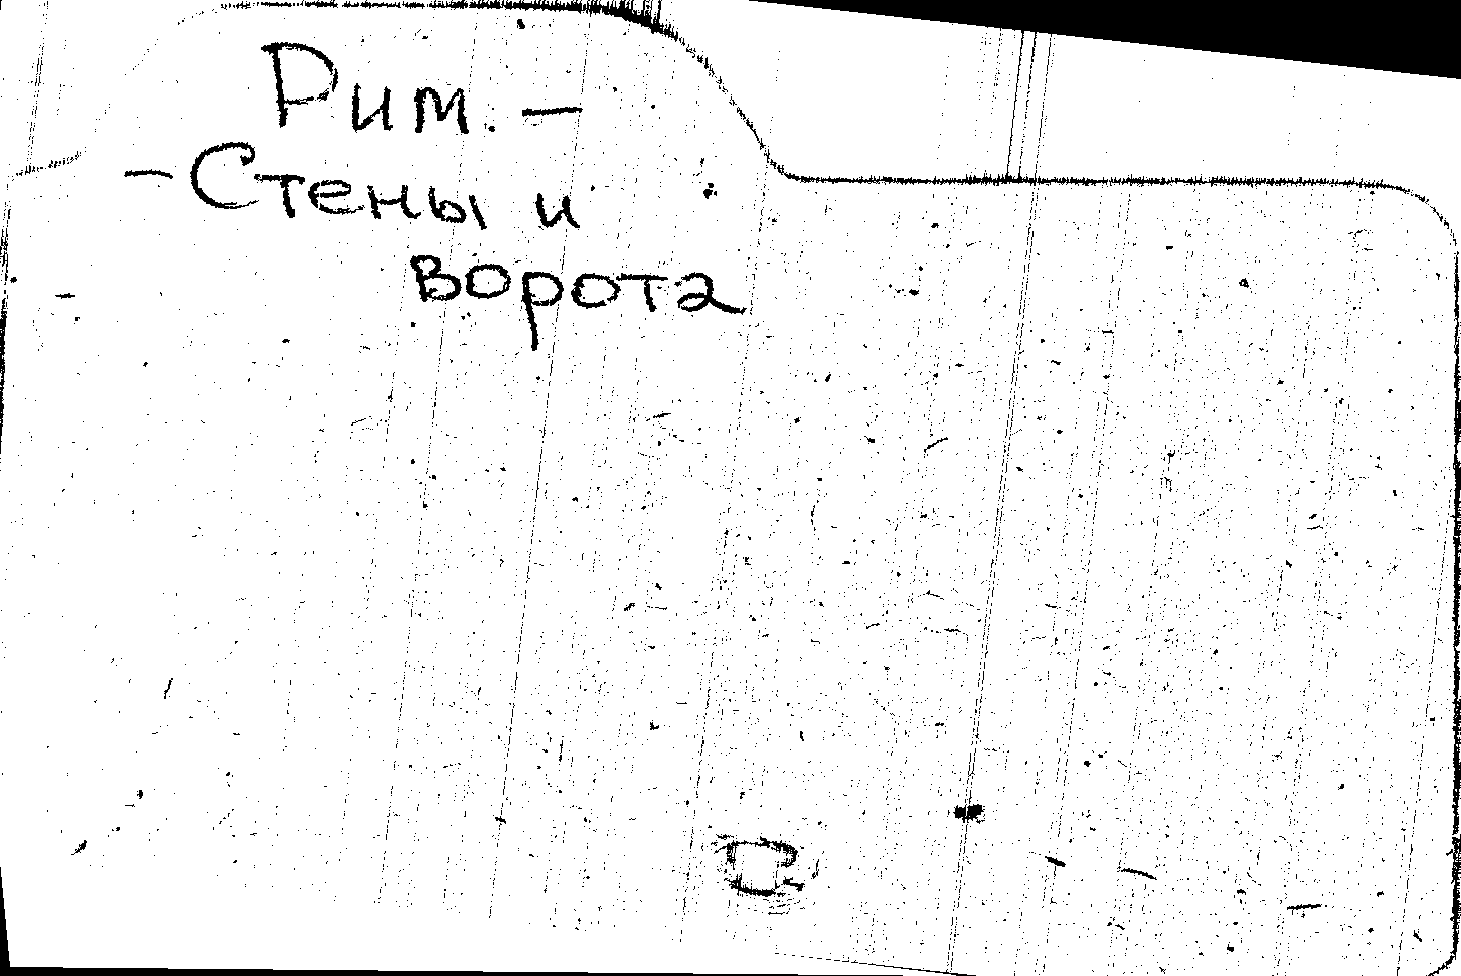 Рим. -
- Стены и
ворота